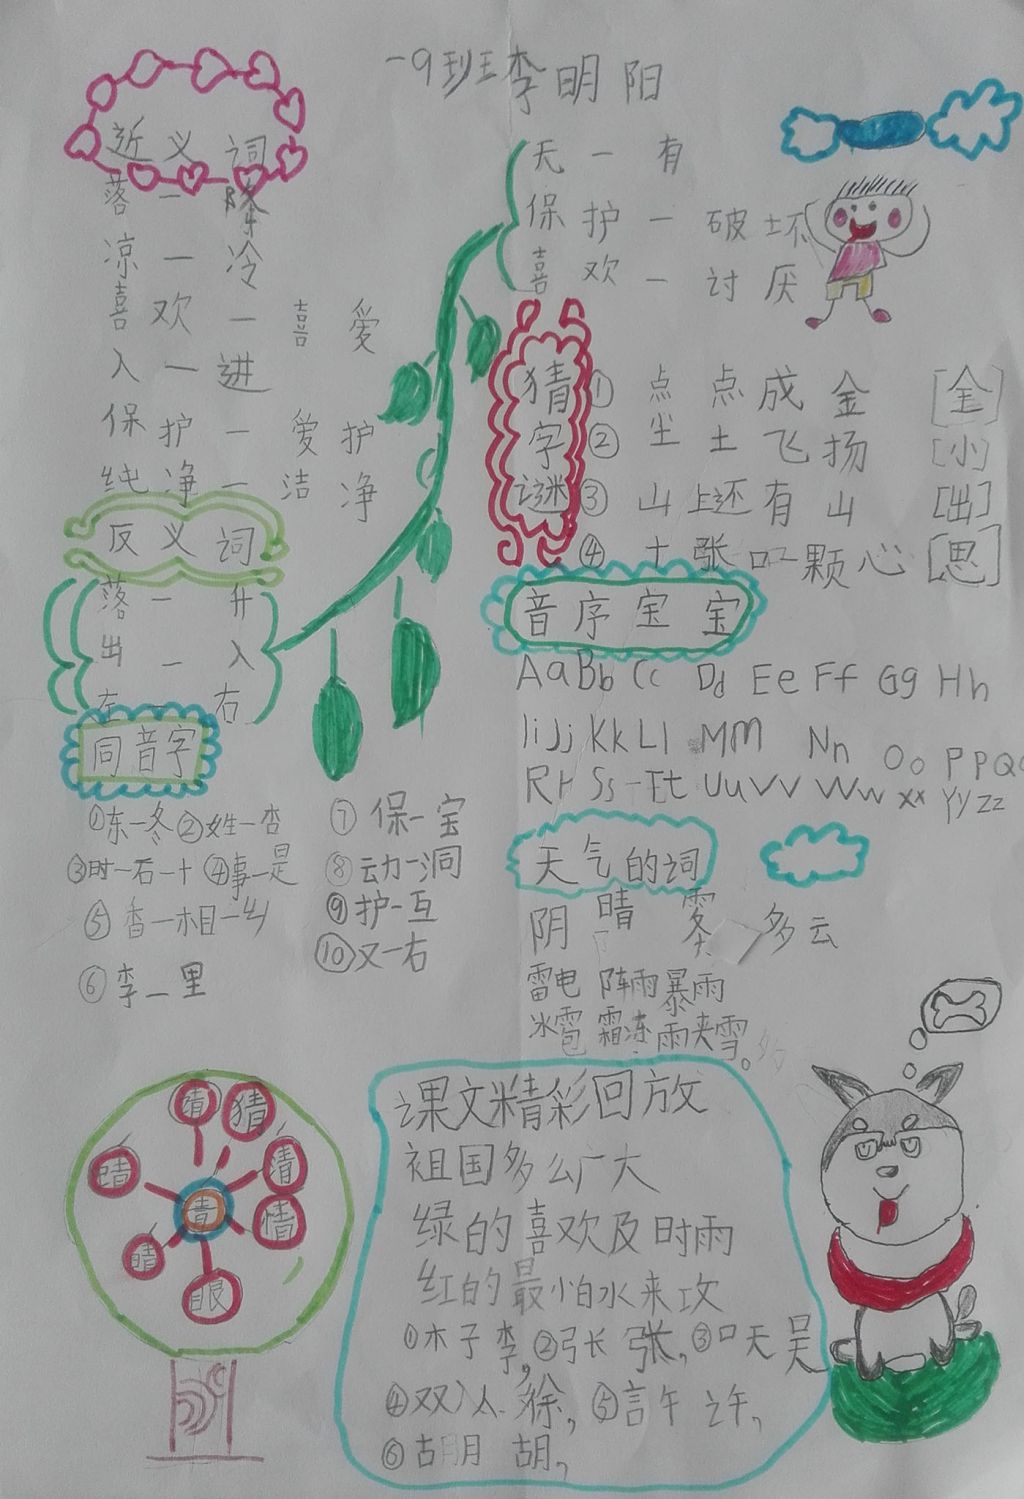 一9班李明阳
近义词
落一降
凉一冷
喜欢一喜爱
入一进
保护一爱护
纯净一洁净
反义词
落一升
出一入
左一右
无一有
保护一破坏
喜欢一讨厌
猜字谜
①点点成金[金]
②尘土飞扬[小]
③山上还有山[出]
④十张口一颗心[思]
音序宝宝
Aa Bb Cc Dd Ee Ff Gg Hh
Ii Jj Kk Ll Mm Nn Oo Pp Qq
Rr Ss Tt Uu Vv Ww Xx Yy Zz
同音字
①东一冬②姓一杏
③时一石一十④事一是
⑤香一相一乡
⑥李一里
⑦保一宝
⑧动一洞
⑨护一互
⑩又一右
天气的词
阴 晴 雾 多云
雷电 阵雨 暴雨
冰雹 霜冻 雨夹雪。
猜
清
情
眼
晴
睛
青
课文精彩回放
祖国多么广大
绿的喜欢及时雨
红的最怕水来攻
①木子李,②弓长张,③口天吴
④双人徐,⑤言午许,
⑥古月胡,